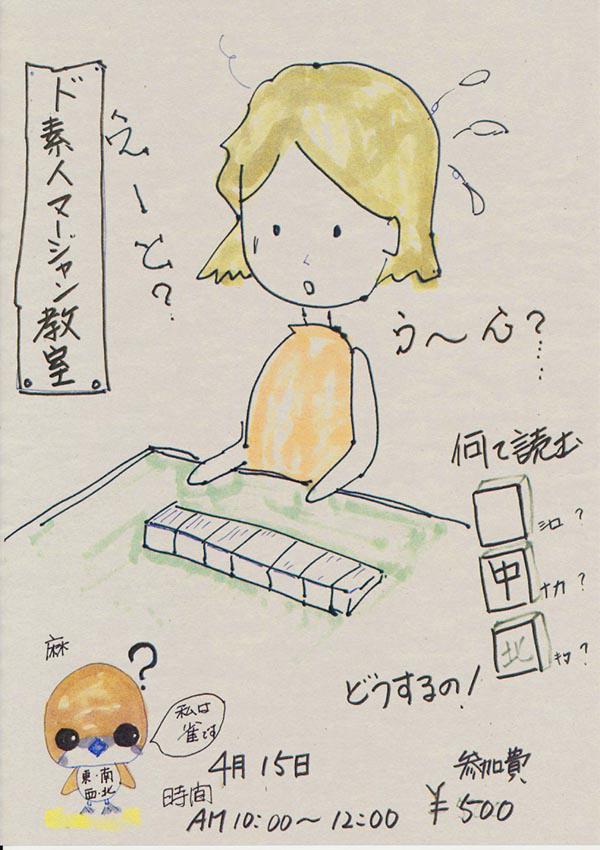 ド素人マージャン教室
えーと?
う〜ん?....
何て読む
シロ?
中
ナカ?
北
キタ?
どうするの!
麻
?
私は
雀です
東・南
西・北
4月15日
時間
AM10:00〜12:00
参加費
¥500